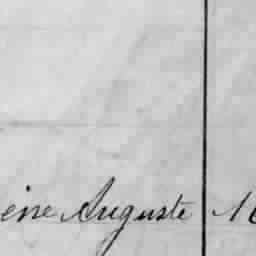 ène Auguste 16